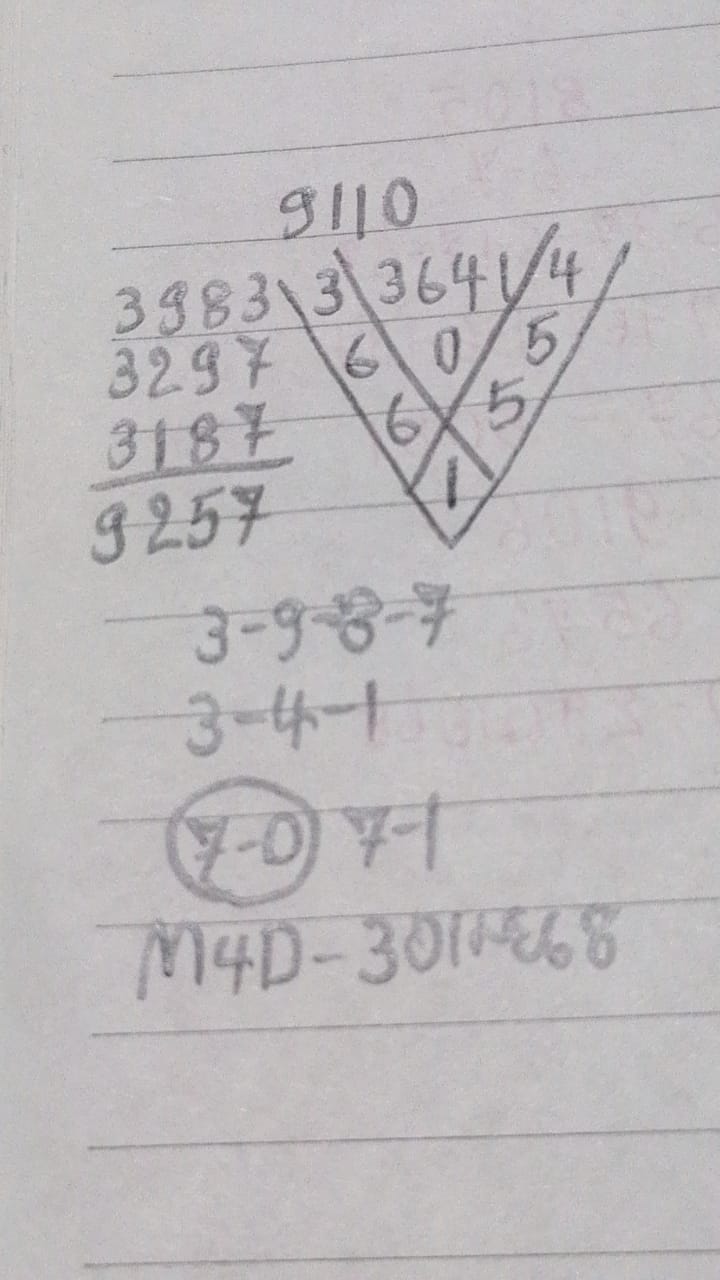 9110
3983 3 3641 4
3297 6 0 5
3187 6 5
9257 1
3-9-8-7
3-4-1
7-0 7-1
M4D-